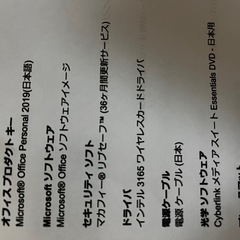 オフィスプロダクト キー
Microsoft® Office Personal 2019(日本語)
Microsoft ソフトウェア
Microsoft® Office ソフトウェアイメージ
セキュリティ ソフト
マカフィー® リブセーフ™ (36ヶ月間更新サービス)
ドライバ
インテル 3165 ワイヤレスカードドライバ
電源 ケーブル
電源 ケーブル (日本)
光学 ソフトウェア
Cyberlink メディア スイート Essentials DVD - 日本用